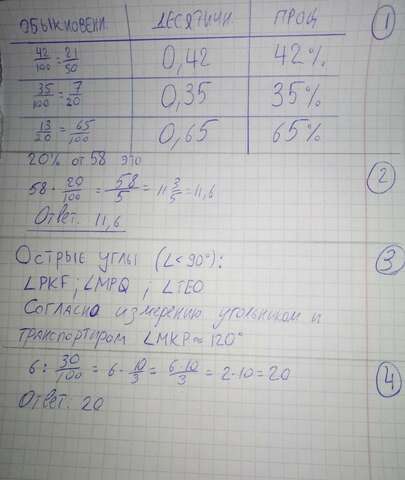 ОБЫКНОВЕНН. ДЕСЯТИЧН. ПРОЦ. 1
42/100 = 21/50 0,42 42%
35/100 = 7/20 0,35 35%
13/20 = 65/100 0,65 65%
20% от 58 это 2
58 · 20/100 = 58/5 = 11 3/5 = 11,6
Ответ. 11,6
Острые углы (∠ < 90°): 3
∠PKF; ∠MPQ; ∠TEO
Согласно измерению угольником и
транспортиром ∠MKP ≈ 120°
6 : 30/100 = 6 · 10/3 = 6·10/3 = 2·10 = 20 4
Ответ. 20